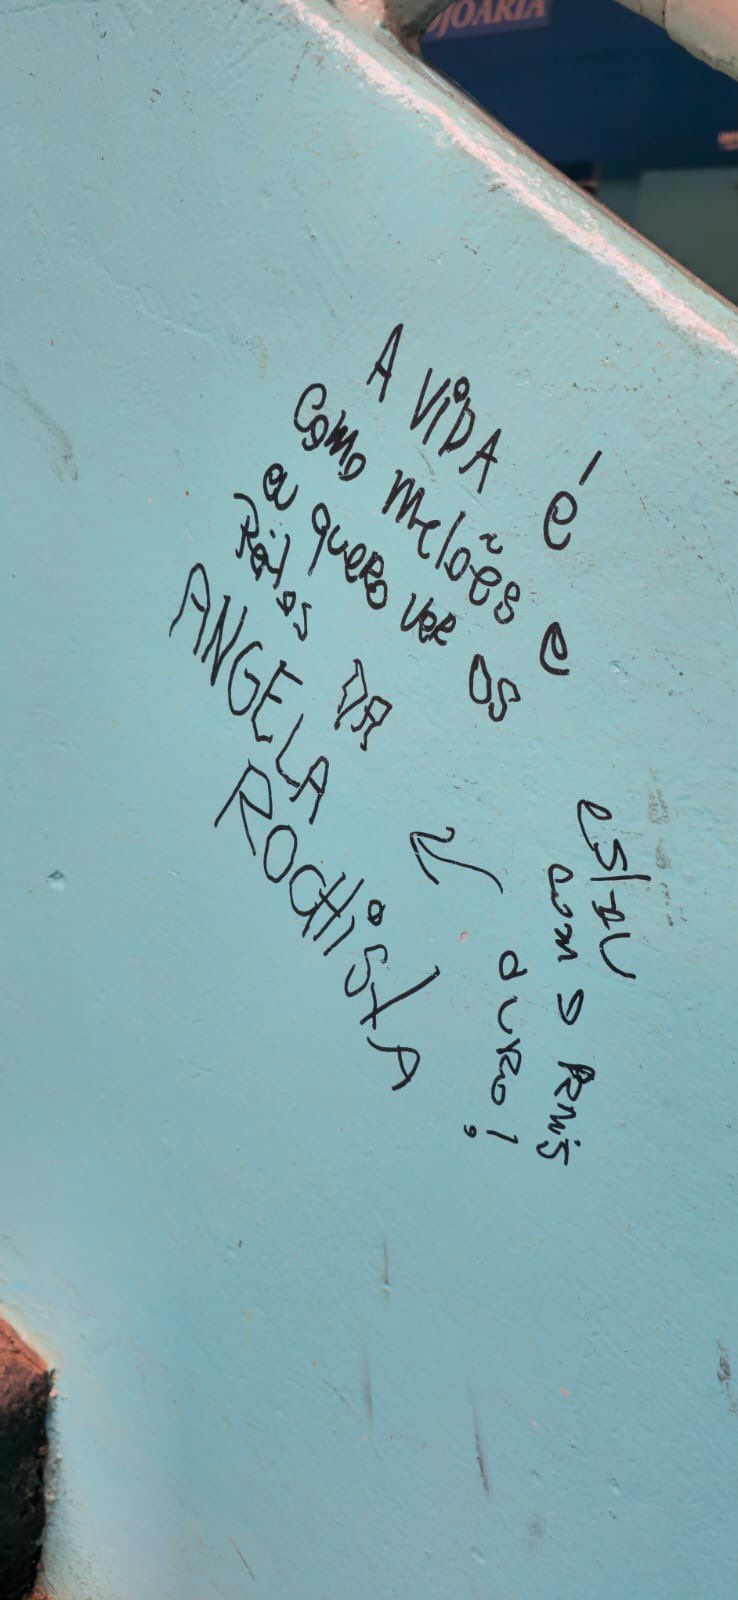 DJOARIA
A ViDA é
Como melões e
eu quero ver os
Peitos DA
ANGELA
ROCHiSTA
estou
com o
duro!